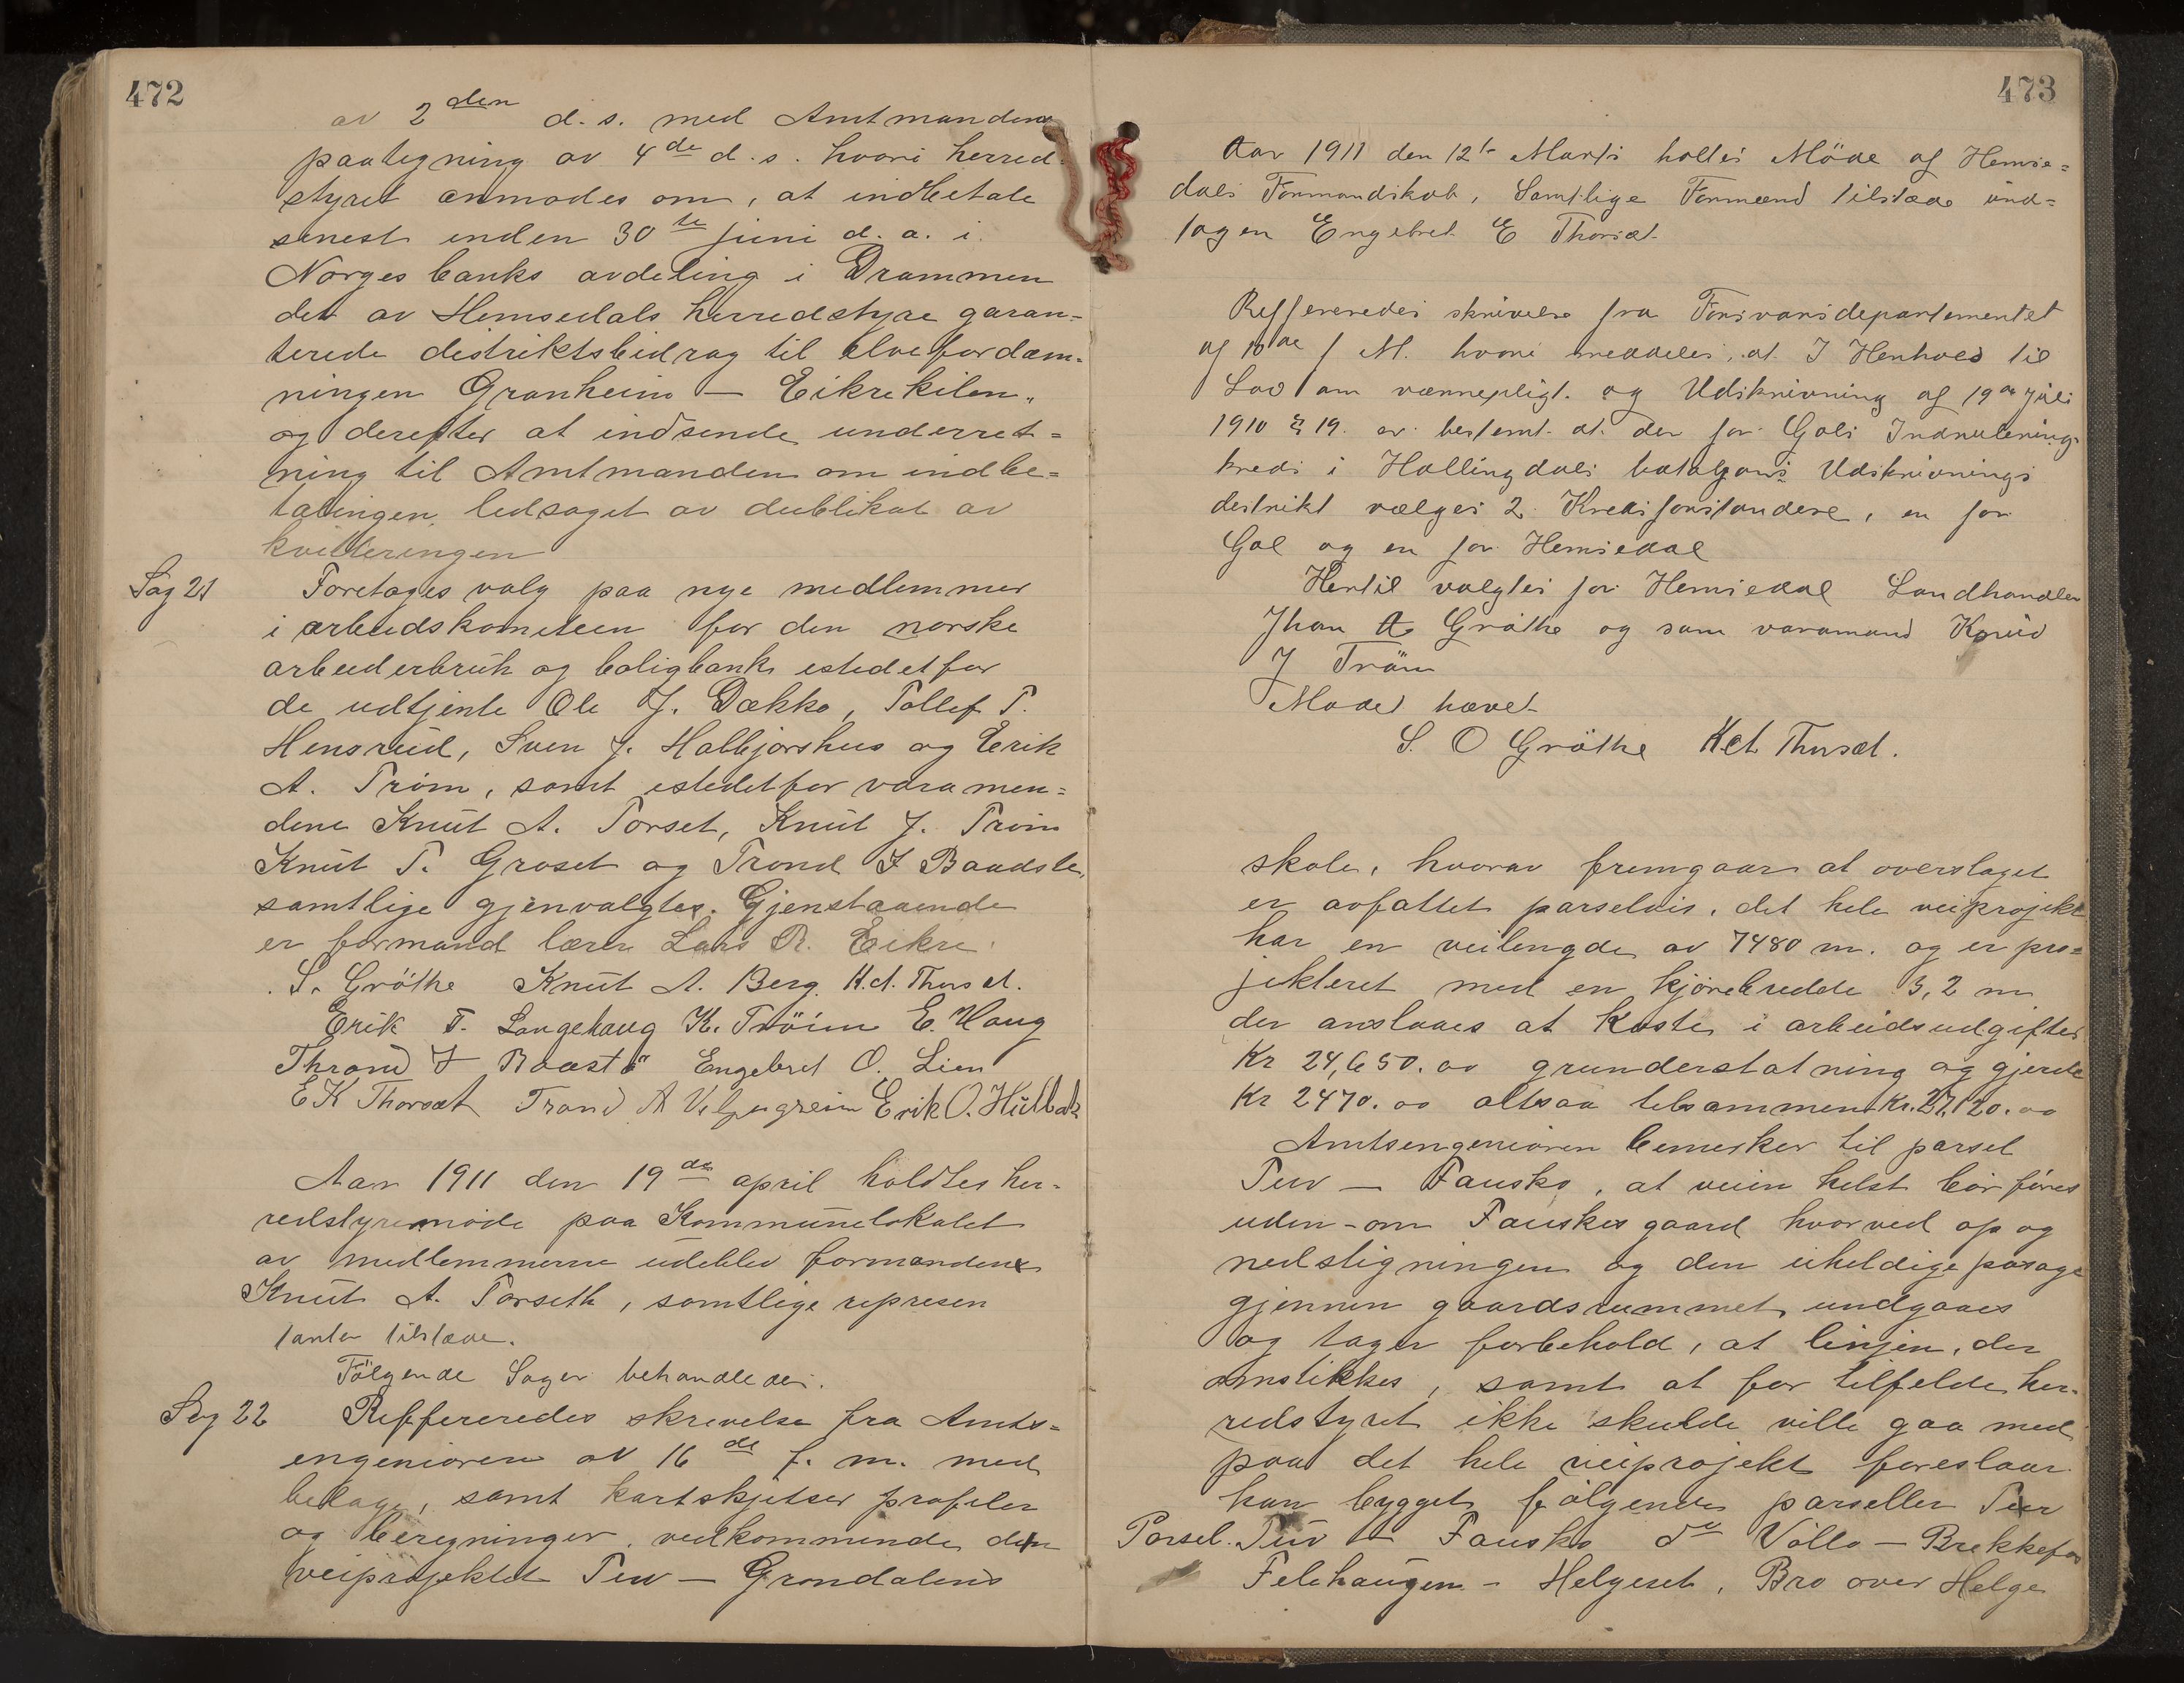 472
av 2den d.s. med Amtmandens
paategning av 4de d.s. hvori herred-
styret anmodes om, at indbetale
senest inden 30te juni d.a. i
Norges banks avdeling i Drammen
det av Hemsedals herredstyre garan=
terede distriktsbidrag til elvefordæm-
ningen Granheim – Eikrekilen,
og derefter at indsende underret=
ning til Amtmanden om indbe=
talingen, ledsaget av dublikat av
kvitteringen
Sag 21 Foretages valg paa nye medlemmer
i arbeidskomiteen for den norske
arbeiderbruk og boligbank istedetfor
de udtjente Ole J. Dække, Tollef T.
Hensrud, Sven J. Halbjørshus og Erik
A. Trøim, samt istedetfor varamen=
dene Knut A. Torset, Knut J. Trøim
Knut T. Groset og Trond I Baadstø,
samtlige gjenvalgtes. Gjenstaaende
er formand lærer Lars R. Eikre.
S. Gröthe Knut A. Berg. K.A. Thorset.
Erik T. Langehaug K. Tröim E. Haug
Thrond I Baastö Engebret O. Lien
E K Thorset Trond A Erik O. Hulbak
Aar 1911 den 19de april holdtes her-
redstyremøde paa Kommunelokalet
av medlemmerne udeblev formanden
Knut A. Torseth, samtlige represen
tanter tilstæde.
Følgende Sager behandledes.
Sag 22 Reffereredes skrivelse fra Amts=
engeniøren av 16de f.m. med
bilage, samt kartskjetser profiler
og beregninger vedkommende den
veiprojektet Tuv – Grøndalens
473
Aar 1911 den 12te Marts holtes Möde af Hemse=
dals Formandskab, Samtlige Formænd tilstæde und=
tagen Engebret E Thorset
Reffereredes skrivelse fra Forsvarsdepartementet
af 10de f M. hvori meddeles, at I Henhold til
Lov om værnepligt og Udskrivning af 19de juli
1910 § 19. er bestemt at der for Gols Indrulerings
kreds i Hallingdals bataljons Udskrivnings
destrikt vælges 2 Kredsforstandere, en for
Gol og en for Hemsedal
Hertil valgtes for Hemsedal Landhandler
Jhon A. Gröthe og som varamand Knud
J Tröim
Mödet hævet
S. O Gröthe K A Thorset.
skole, hvorav fremgaar at overslaget
er avfattet parselvis, det hele veiprojekt
har en veilengde av 7480 m. og er pro=
jekteret med en kjørebredde 3,2 m
der anslaaes at koste i arbeidsudgifter
Kr 24,650.oo grunderstatning og gjerde
Kr 2470.oo altsaa tilsammen Kr. 27,120.oo
Amtsengeniøren bemerker til parsel
Tuv – Fauske, at veien helst bør føres
uden-om Fauskes gaard hvorved op og
nedstigningen og den uheldige pasage
gjennem gaardsrummet undgaaes
og tager forbehold, at linjen, der
omstikkes, samt at for tilfelde her-
redstyret ikke skulde ville gaa med
paa det hele veiprojekt foreslaar
han bygget følgende parseller Tuv
Parsel. Tuv – Fauske do Vølle – Brekkefos
Felehaugen – Helgeset, Bro over Helge